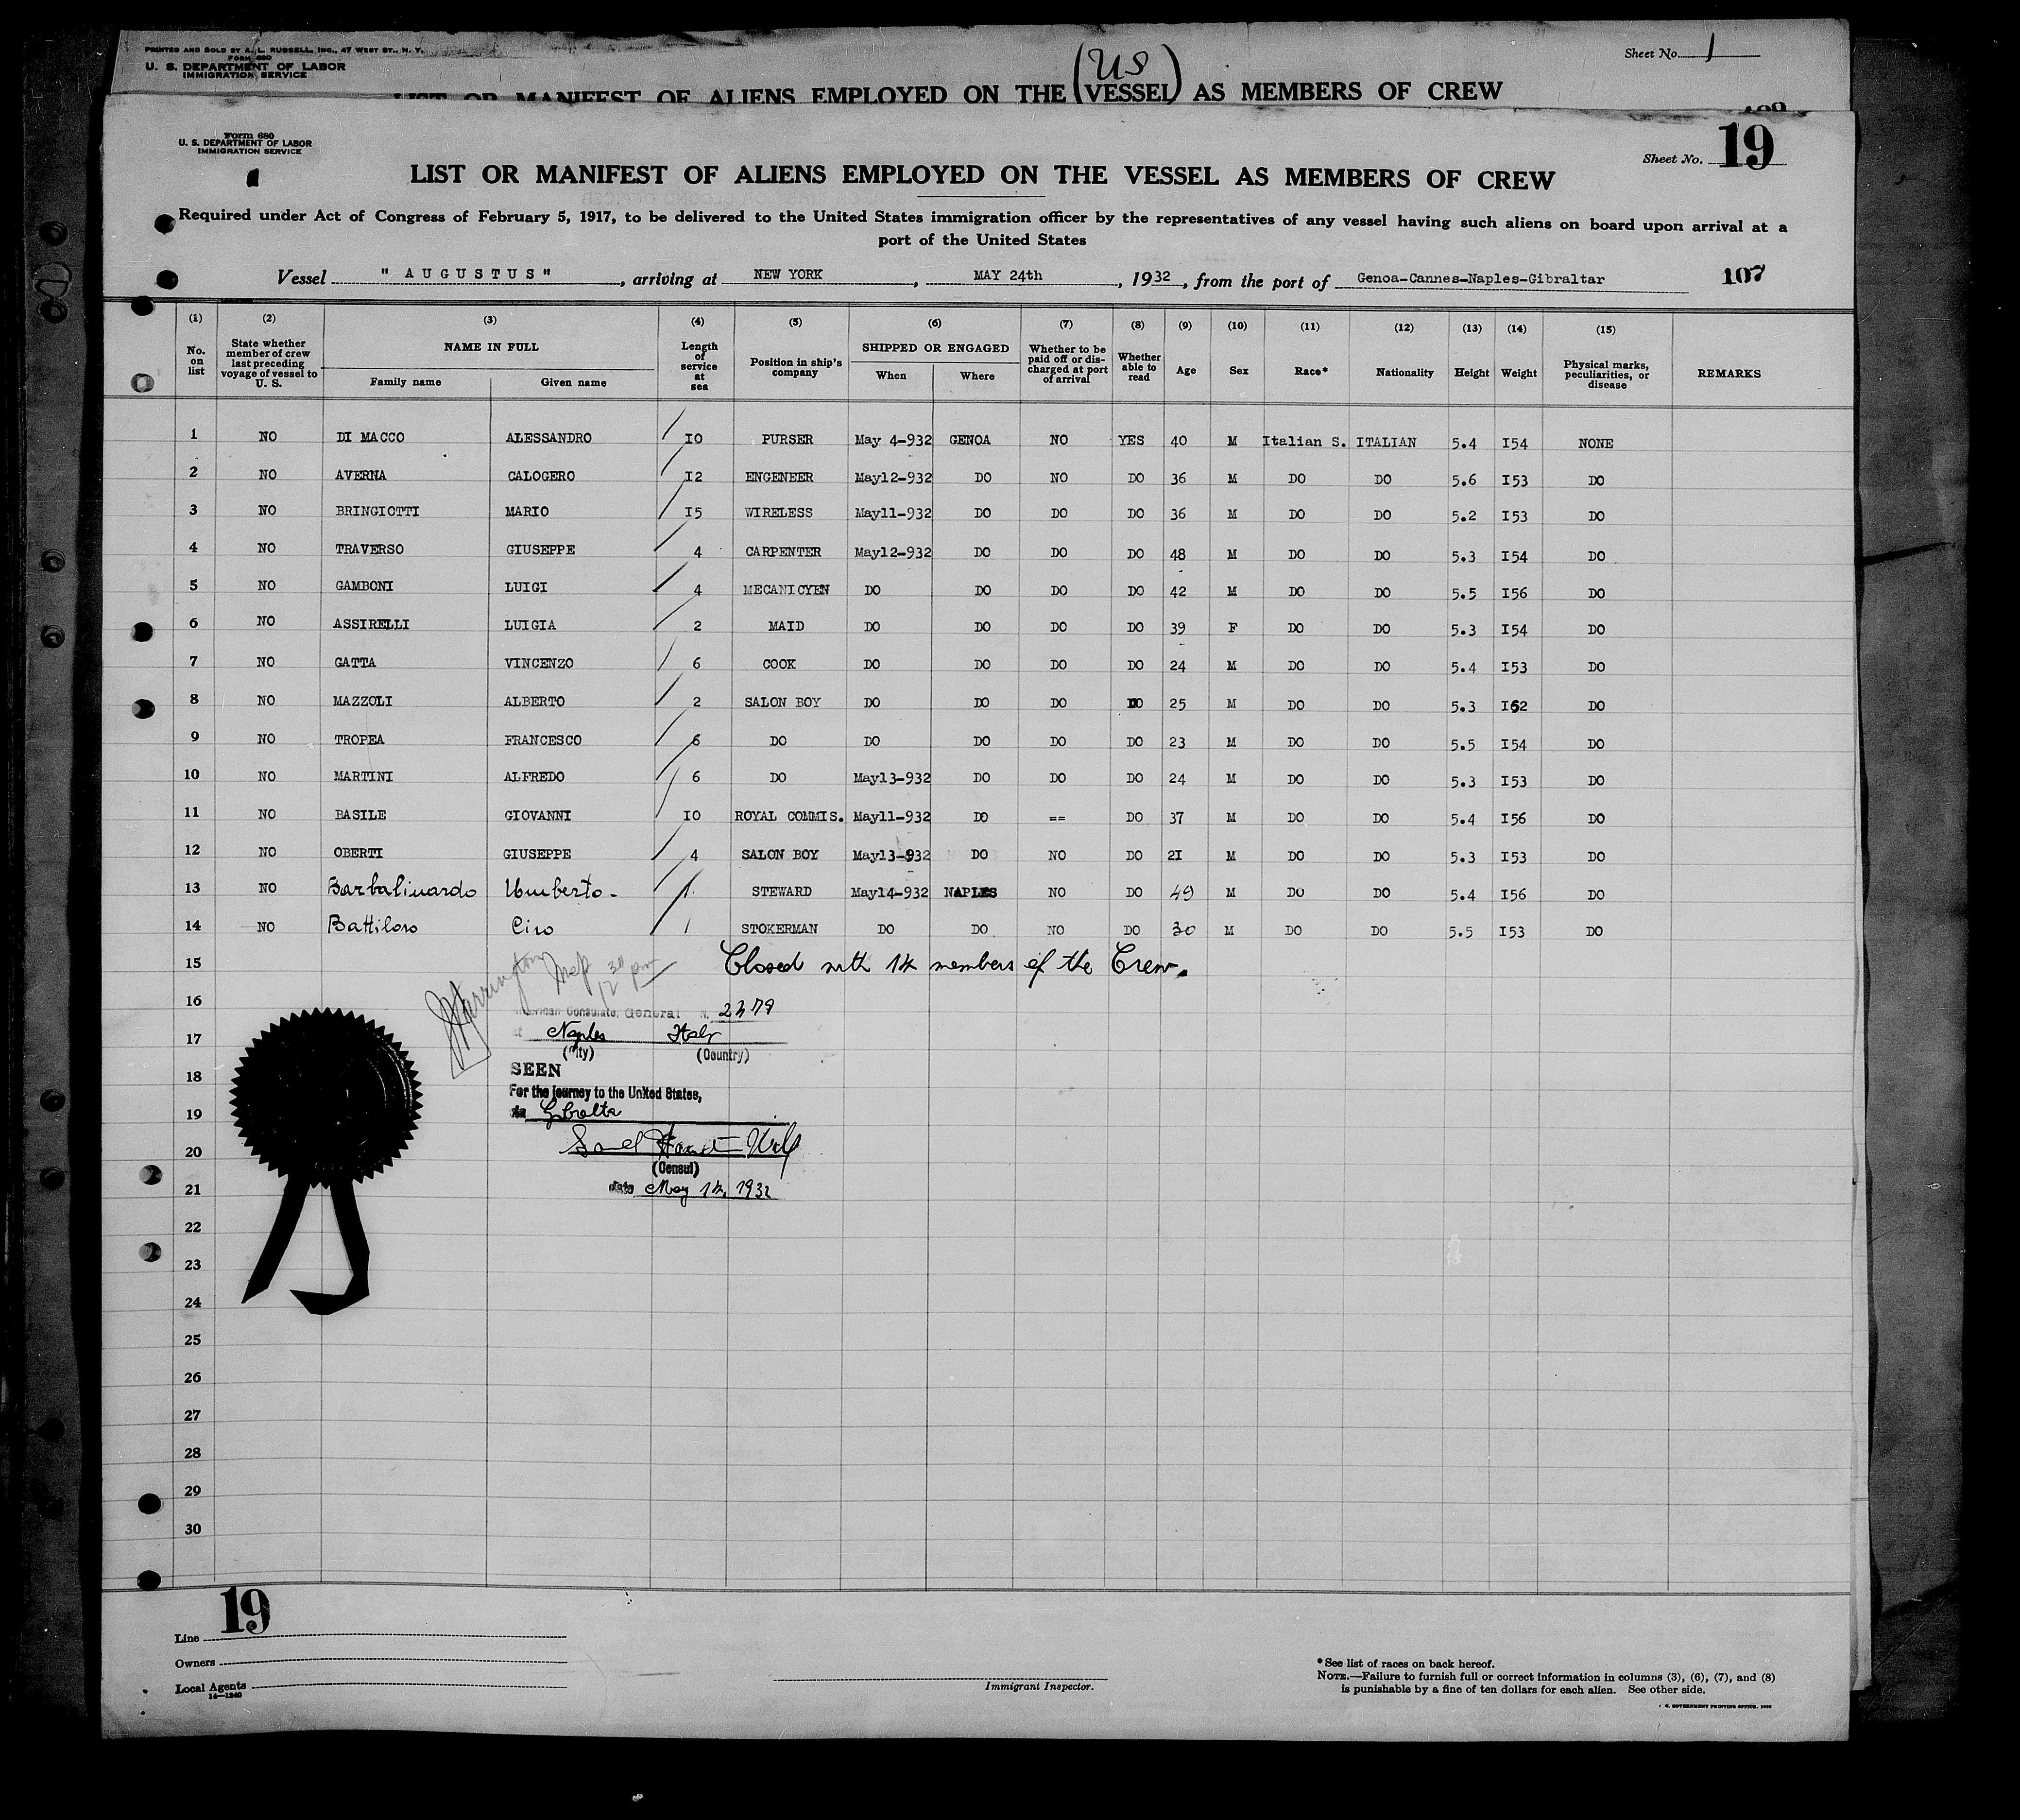 PRINTED AND SOLD BY A. L. RUSSELL, INC., 47 WEST ST., N. Y.
FORM 680
U. S. DEPARTMENT OF LABOR
IMMIGRATION SERVICE
Sheet No. 1
(US)
LIST OR MANIFEST OF ALIENS EMPLOYED ON THE (VESSEL) AS MEMBERS OF CREW
Form 680
U. S. DEPARTMENT OF LABOR
IMMIGRATION SERVICE
Sheet No. 19
LIST OR MANIFEST OF ALIENS EMPLOYED ON THE VESSEL AS MEMBERS OF CREW
Required under Act of Congress of February 5, 1917, to be delivered to the United States immigration officer by the representatives of any vessel having such aliens on board upon arrival at a
port of the United States
Vessel " AUGUSTUS ", arriving at NEW YORK, MAY 24th, 1932, from the port of Genoa-Cannes-Naples-Gibraltar 107
(1) (2) (3) (4) (5) (6) (7) (8) (9) (10) (11) (12) (13) (14) (15)
No. on list State whether member of crew last preceding voyage of vessel to U. S. NAME IN FULL Family name Given name Length of service at sea Position in ship's company SHIPPED OR ENGAGED When Where Whether to be paid off or discharged at port of arrival Whether able to read Age Sex Race* Nationality Height Weight Physical marks, peculiarities, or disease REMARKS
1 NO DI MACCO ALESSANDRO IO PURSER May 4-932 GENOA NO YES 40 M Italian S. ITALIAN 5.4 I54 NONE
2 NO AVERNA CALOGERO I2 ENGENEER May12-932 DO NO DO 36 M DO DO 5.6 I53 DO
3 NO BRINGIOTTI MARIO I5 WIRELESS May11-932 DO DO DO 36 M DO DO 5.2 I53 DO
4 NO TRAVERSO GIUSEPPE 4 CARPENTER May12-932 DO DO DO 48 M DO DO 5.3 I54 DO
5 NO GAMBONI LUIGI 4 MECANICYEN DO DO DO DO 42 M DO DO 5.5 I56 DO
6 NO ASSIRELLI LUIGIA 2 MAID DO DO DO DO 39 F DO DO 5.3 I54 DO
7 NO GATTA VINCENZO 6 COOK DO DO DO DO 24 M DO DO 5.4 I53 DO
8 NO MAZZOLI ALBERTO 2 SALON BOY DO DO DO DO 25 M DO DO 5.3 I52 DO
9 NO TROPEA FRANCESCO 6 DO DO DO DO DO 23 M DO DO 5.5 I54 DO
10 NO MARTINI ALFREDO 6 DO May13-932 DO DO DO 24 M DO DO 5.3 I53 DO
11 NO BASILE GIOVANNI IO ROYAL COMMIS. May11-932 DO == DO 37 M DO DO 5.4 I56 DO
12 NO OBERTI GIUSEPPE 4 SALON BOY May13-932 DO NO DO 2I M DO DO 5.3 I53 DO
13 NO Barbalinardo Umberto - 1 STEWARD May14-932 NAPLES NO DO 49 M DO DO 5.4 I56 DO
14 NO Battiloro Ciro 1 STOKERMAN DO DO NO DO 30 M DO DO 5.5 I53 DO
15 Closed with 14 members of the Crew.
16 American Consulate General N. 2479
17 at Naples Italy
(City) (Country)
18 SEEN
For the journey to the United States,
19 via Gibraltar
20
(Consul)
21 date May 14, 1932
22
23
24
25
26
27
28
29
30
19
Line
Owners
Local Agents
14—1240
Immigrant Inspector.
*See list of races on back hereof.
NOTE.—Failure to furnish full or correct information in columns (3), (6), (7), and (8)
is punishable by a fine of ten dollars for each alien. See other side.